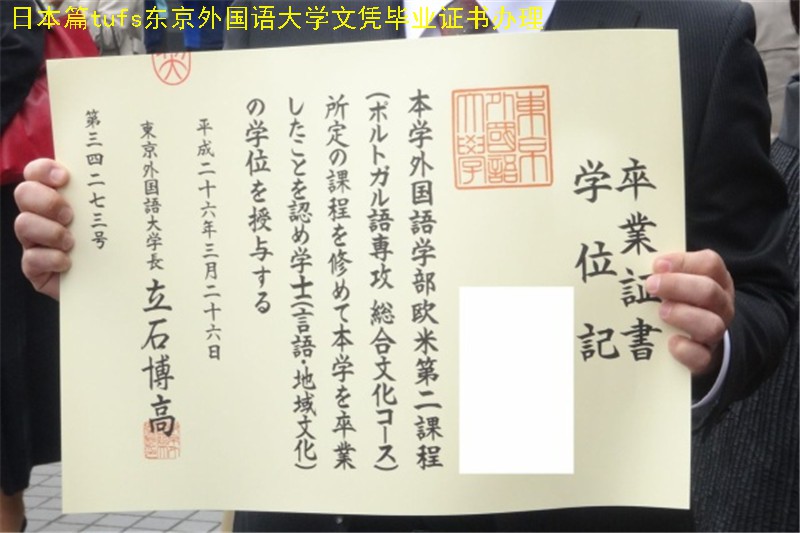 日本篇tufs东京外国语大学文凭毕业证书办理
卒業証書
学位記
東京
外國語
大學
本学外国語学部欧米第二課程
(ポルトガル語専攻 総合文化コース)
所定の課程を修めて本学を卒業
したことを認め学士(言語・地域文化)
の学位を授与する
平成二十六年三月二十六日
東京外国語大学長 立石博高
第三四二七三号